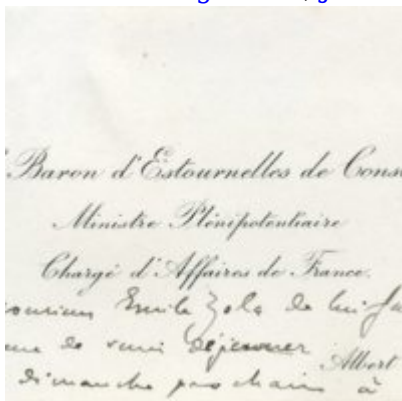 Baron d'Estournelles de Cons
Ministre Plénipotentiaire
Chargé d'Affaires de France.
Emile Zola de lui
de venir déjeuner Albert
dimanche prochain à